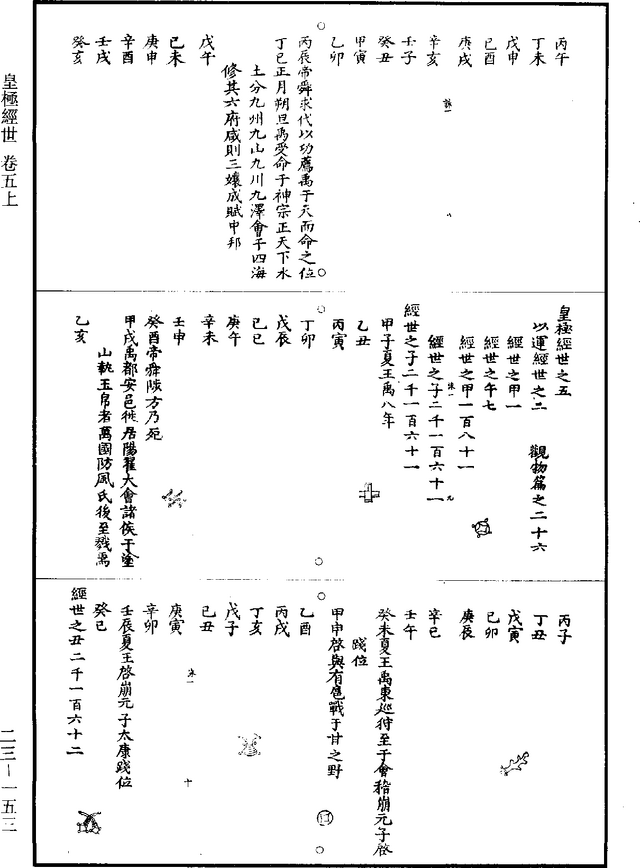 丙午
丁未
戊申
己酉
庚戌
辛亥
壬子
癸丑
甲寅
乙卯
丙辰帝舜求代以功薦禹于天而命之位
丁巳正月朔旦禹受命于神宗正天下水
土分九州九山九川九澤會于四海
修其六府咸則三壤成賦中邦
戊午
己未
庚申
辛酉
壬戌
癸亥
皇極經世之五
以運經世之二　觀物篇之二十六
經世之甲一
經世之午七
經世之甲一百八十一
經世之子二千一百六十一
經世之子二千一百六十一
甲子夏王禹八年
乙丑
丙寅
丁卯
戊辰
己巳
庚午
辛未
壬申
癸酉帝舜陟方乃死
甲戌禹都安邑徙居陽翟大會諸侯于塗
山執玉帛者萬國防風氏後至戮焉
乙亥
丙子
丁丑
戊寅
己卯
庚辰
辛巳
壬午
癸未夏王禹東巡狩至于會稽崩元子啓
踐位
甲申啓與有扈戰于甘之野
乙酉
丙戌
丁亥
戊子
己丑
庚寅
辛卯
壬辰夏王啓崩元子太康踐位
癸巳
經世之丑二千一百六十二
皇極經世　卷五上
二三－一五三